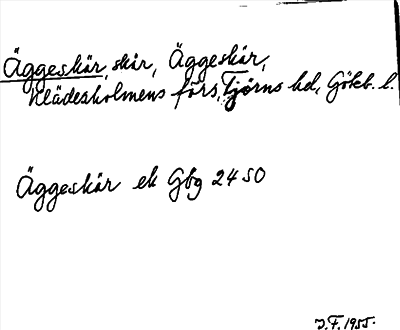 Äggeskär, skär, Äggeskär,
Klädesholmens förs, Tjörns hd, Göteb. l.
Äggeskär ek Gbg 24 SO
J.F. 1955.